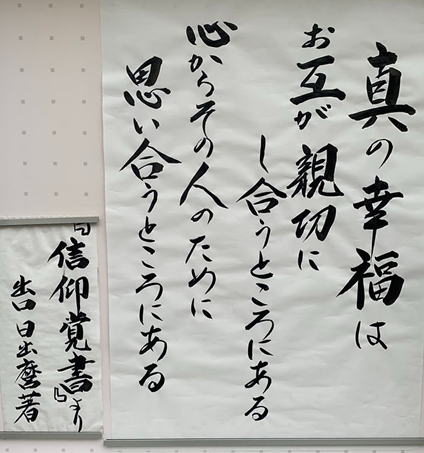 真の幸福は
お互が親切に
し合うところにある
心からその人のために
思い合うところにある
『信仰覚書』より
出口日出麿著